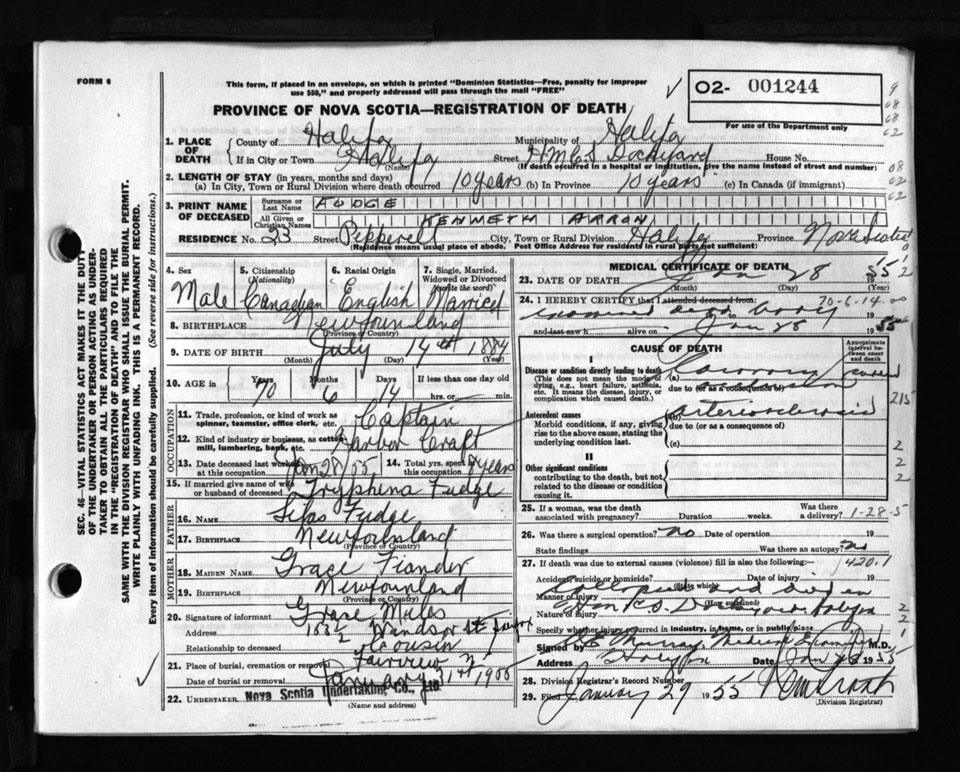 FORM 6
This form, if placed in an envelope, on which is printed "Dominion Statistics—Free, penalty for improper
use $50," and properly addressed will pass through the mail "FREE"
PROVINCE OF NOVA SCOTIA—REGISTRATION OF DEATH
O2- 001244
For use of the Department only
1. PLACE OF DEATH
County of Halifax Municipality of Halifax
If in City or Town Halifax Street H.M.C.S Dockyard House No.
(Name) (If death occurred in a hospital or institution, give its name instead of street and number)
2. LENGTH OF STAY (in years, months and days)
(a) In City, Town or Rural Division where death occurred 10 years (b) In Province 10 years (c) In Canada (if immigrant)
3. PRINT NAME OF DECEASED
Surname or Last Name FUDGE
All Given or Christian Names KENNETH ARRON
RESIDENCE No. 23 Street Pepperell City, Town or Rural Division Halifax Province Nova Scotia
(Residence means usual place of abode. Post Office Address for residents in rural parts not sufficient)
4. Sex Male
5. Citizenship (Nationality) Canadian
6. Racial Origin English
7. Single, Married, Widowed or Divorced (write the word) Married
8. BIRTHPLACE Newfounland
(Province or Country)
9. DATE OF BIRTH July 14th 1884
(Month) (Day) (Year)
10. AGE in Years 70 Months 6 Days 14 If less than one day old hrs. or min.
OCCUPATION
11. Trade, profession, or kind of work as spinner, teamster, office clerk, etc. Captain
12. Kind of industry or business, as cotton mill, lumbering, bank, etc. Harbor Craft
13. Date deceased last worked at this occupation Jan 28/55 14. Total yrs. spent in this occupation years
15. If married give name of wife or husband of deceased Tryphena Fudge
FATHER
16. NAME Silas Fudge
17. BIRTHPLACE Newfoundland
(Province or Country)
MOTHER
18. MAIDEN NAME Grace Fiander
19. BIRTHPLACE Newfounland
(Province or Country)
20. Signature of informant Grace Miles
Address Windsor St
Relationship to deceased Cousin
21. Place of burial, cremation or removal Fairview
Date of burial or removal January 31st 1955
22. UNDERTAKER Nova Scotia Undertaking Co., Ltd.
(Name and address)
MEDICAL CERTIFICATE OF DEATH
23. DATE OF DEATH Jan 28 1955
(Month) (Day) (Year)
24. I HEREBY CERTIFY that I attended deceased from: 70-6-14
examined dead body 19
and last saw h alive on Jan 28 1955
CAUSE OF DEATH
Approximate interval between onset and death
I
Disease or condition directly leading to death
(This does not mean the mode of dying, e.g., heart failure, asthenia, etc. It means the disease, injury, or complication which caused death.)
(a) Coronary occlusion
due to (or as a consequence of)
Antecedent causes
Morbid conditions, if any, giving rise to the above cause, stating the underlying condition last.
(b) arteriosclerosis
due to (or as a consequence of)
(c)
II
Other significant conditions
contributing to the death, but not related to the disease or condition causing it.
25. If a woman, was the death associated with pregnancy? Duration weeks. Was there a delivery? 1-28-5
26. Was there a surgical operation? no Date of operation 19
State findings Was there an autopsy? no
27. If death was due to external causes (violence) fill in also the following: 420.1
Accident, suicide or homicide? Date of injury 19
(State which)
Manner of injury collapsed and died on
(How sustained)
Nature of injury H.M.C.S. Dockyard Halifax
Specify whether injury occurred in industry, in home, or in public place
Signed by Medical Examiner M.D.
Address Halifax Date Jan 28 1955
28. Division Registrar's Record Number
29. Filed January 29 1955
(Division Registrar)
SEC. 46 VITAL STATISTICS ACT MAKES IT THE DUTY
OF THE UNDERTAKER OR PERSON ACTING AS UNDER-
TAKER TO OBTAIN ALL THE PARTICULARS REQUIRED
IN THE "REGISTRATION OF DEATH" AND TO FILE THE
SAME WITH THE DIVISION REGISTRAR WHO SHALL ISSUE THE BURIAL PERMIT.
WRITE PLAINLY WITH UNFADING INK. THIS IS A PERMANENT RECORD.
Every item of information should be carefully supplied. (See reverse side for instructions.)